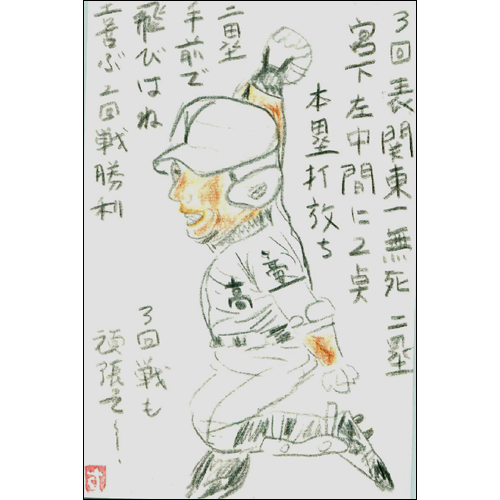 3回表関東一無死二塁
宮下左中間に2点
本塁打放ち
二塁
手前で
飛びはね
喜ぶ2回戦勝利
臺
高
3回戦も
頑張るぞ〜、
す